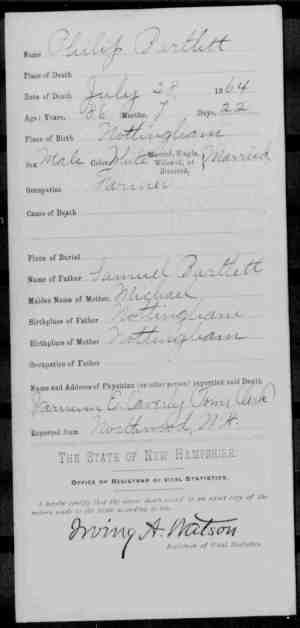 Name Philip Bartlett
Place of Death
Date of Death July 28, 1864
Age: Years, 86 Months, 7 Days, 22
Place of Birth Nottingham
Sex Male Color White Married, Single, Widowed, or Divorced, } Married
Occupation Farmer
Cause of Death
Place of Burial
Name of Father Samuel Bartlett
Maiden Name of Mother
Birthplace of Father Nottingham
Birthplace of Mother Nottingham
Occupation of Father
Name and Address of Physician (or other person) reporting said Death
E. Caverly (Town Clerk)
Reported from Northwood, N.H.
THE STATE OF NEW HAMPSHIRE.
OFFICE OF REGISTRAR OF VITAL STATISTICS.
I hereby certify that the above death record is an exact copy of the
return made to the
Irving A. Watson
Registrar of Vital Statistics.